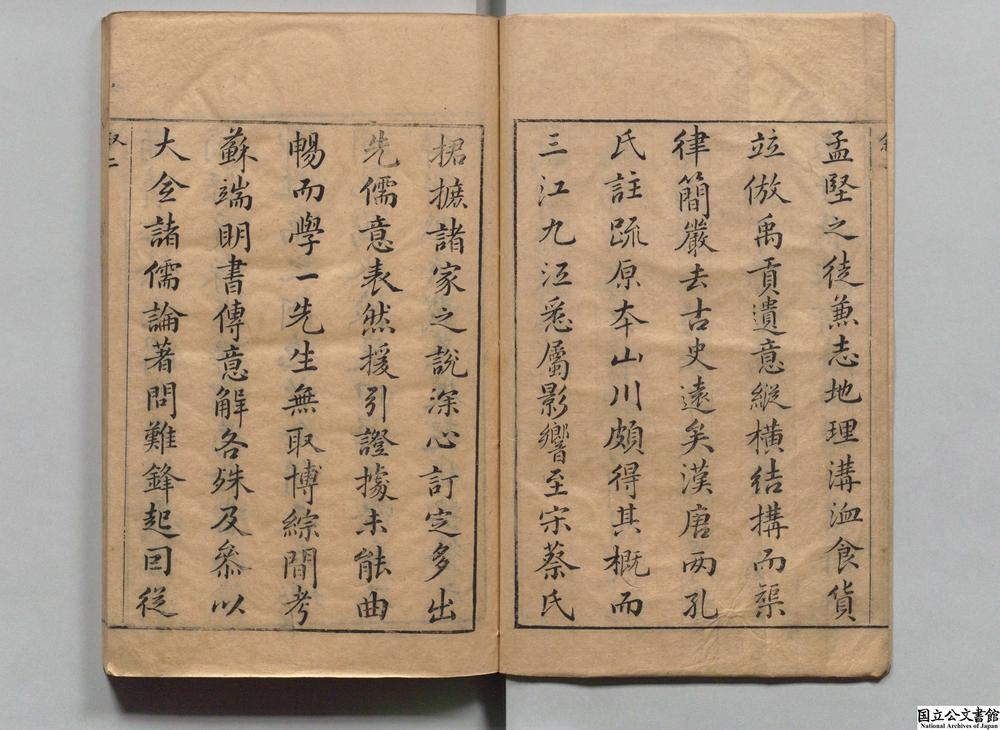 孟堅之徒兼志地理溝洫食貨
竝倣禹貢遺意縱橫結搆而榘
律簡嚴去古史遠矣漢唐兩孔
氏註疏原本山川頗得其概而
三江九江悉屬影響至宋蔡氏
捃摭諸家之說深心訂定多出
先儒意表然援引證據未能曲
暢而學一先生無取博綜間考
蘇端明書傳意解各殊及叅以
大全諸儒論著問難鋒起因從
叙二
国立公文書館
National Archives of Japan